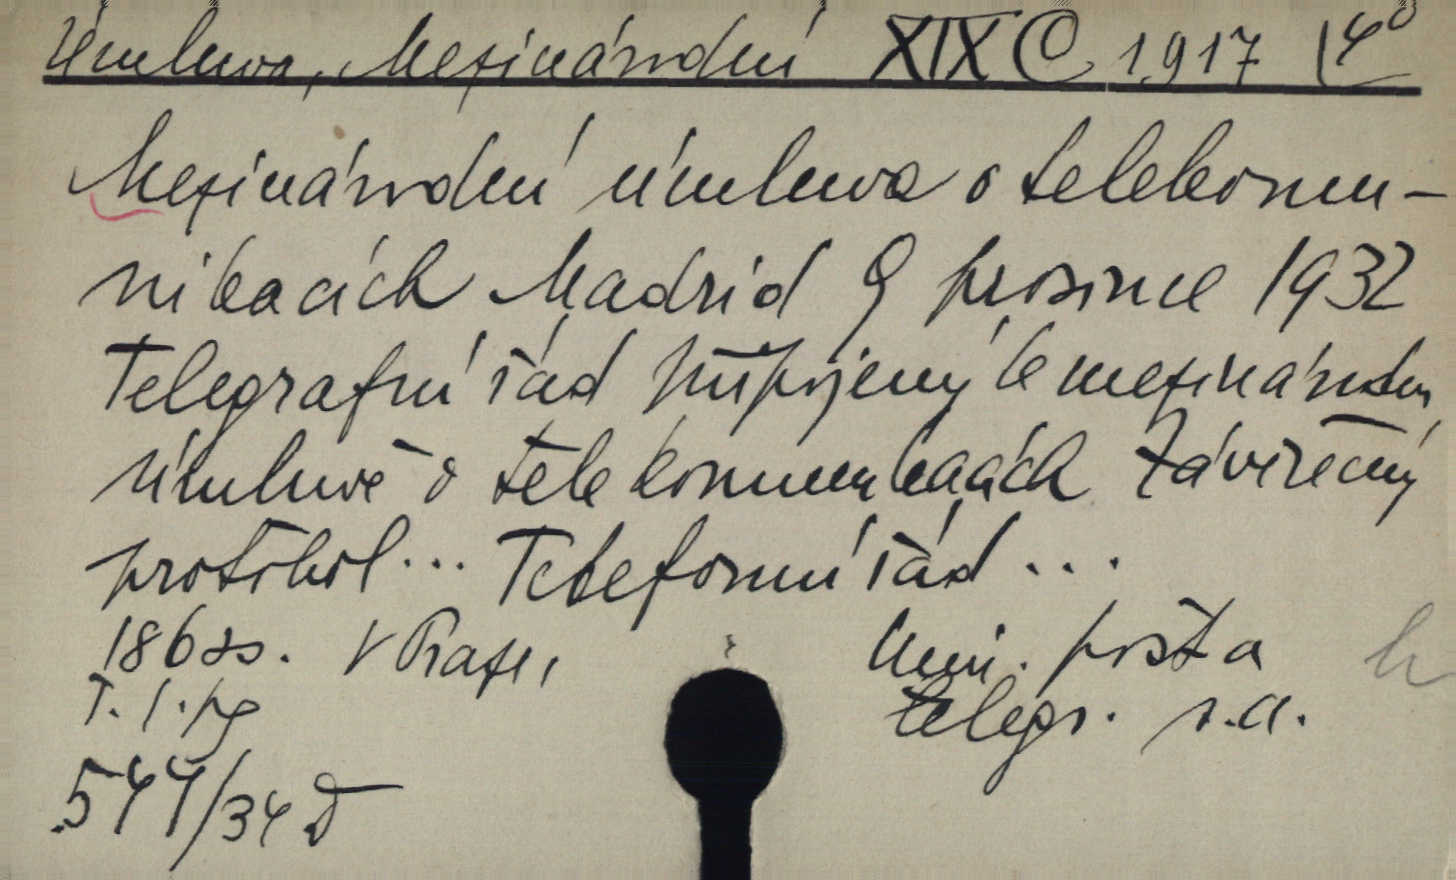 Úmluva, Mezinárodní XIX C 1917 4°
Mezinárodní úmluva o telekomu-
nikacích Madrid 9 prosince 1932
Telegrafní řád připojený k mezinárodní
úmluvě o telekomunikacích Závěrečný
protokol... Telefonní řád ...
186 ss. V Praze, Mini. pošt a
T. l. pg telegr. s.a.
544/34 D